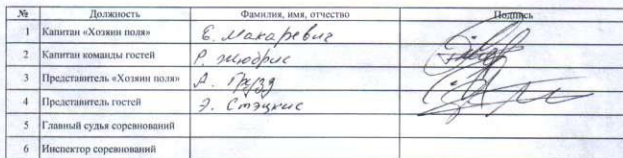 № Должность Фамилия, имя, отчество Подпись
1 Капитан «Хозяин поля» Е. Макаревич
2 Капитан команды гостей Р. Жюбрис
3 Представитель «Хозяин поля» А. Грузд
4 Представитель гостей Э. Стэцкис
5 Главный судья соревнований
6 Инспектор соревнований